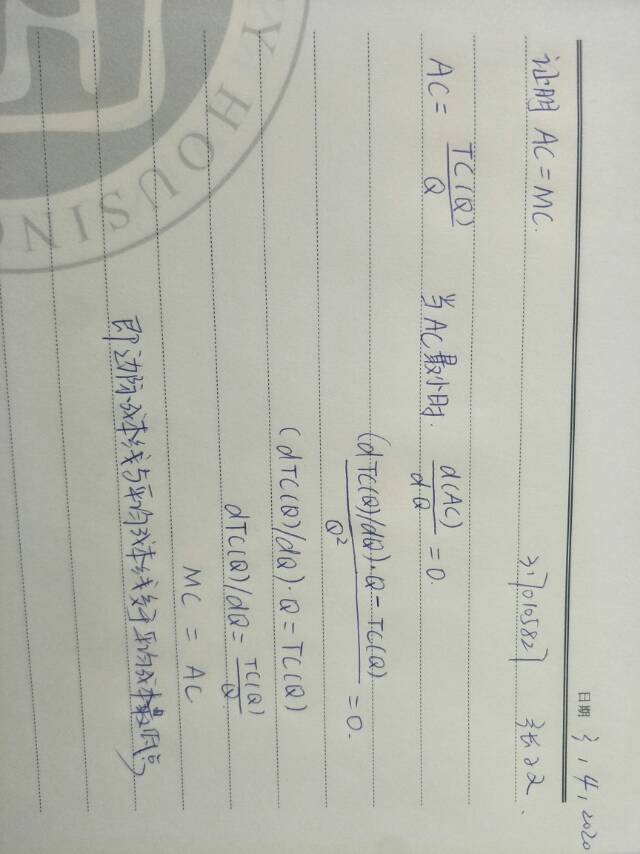 日期 3, 4, 2020
317010582 张
证明 AC = MC.
AC = TC(Q)/Q 当AC最小时. d(AC)/dQ = 0.
(dTC(Q)/dQ)·Q - TC(Q) / Q² = 0.
(dTC(Q)/dQ)·Q = TC(Q)
dTC(Q)/dQ = TC(Q)/Q
MC = AC
即边际成本线与平均成本线交于平均成本最低点
Y HOUSING